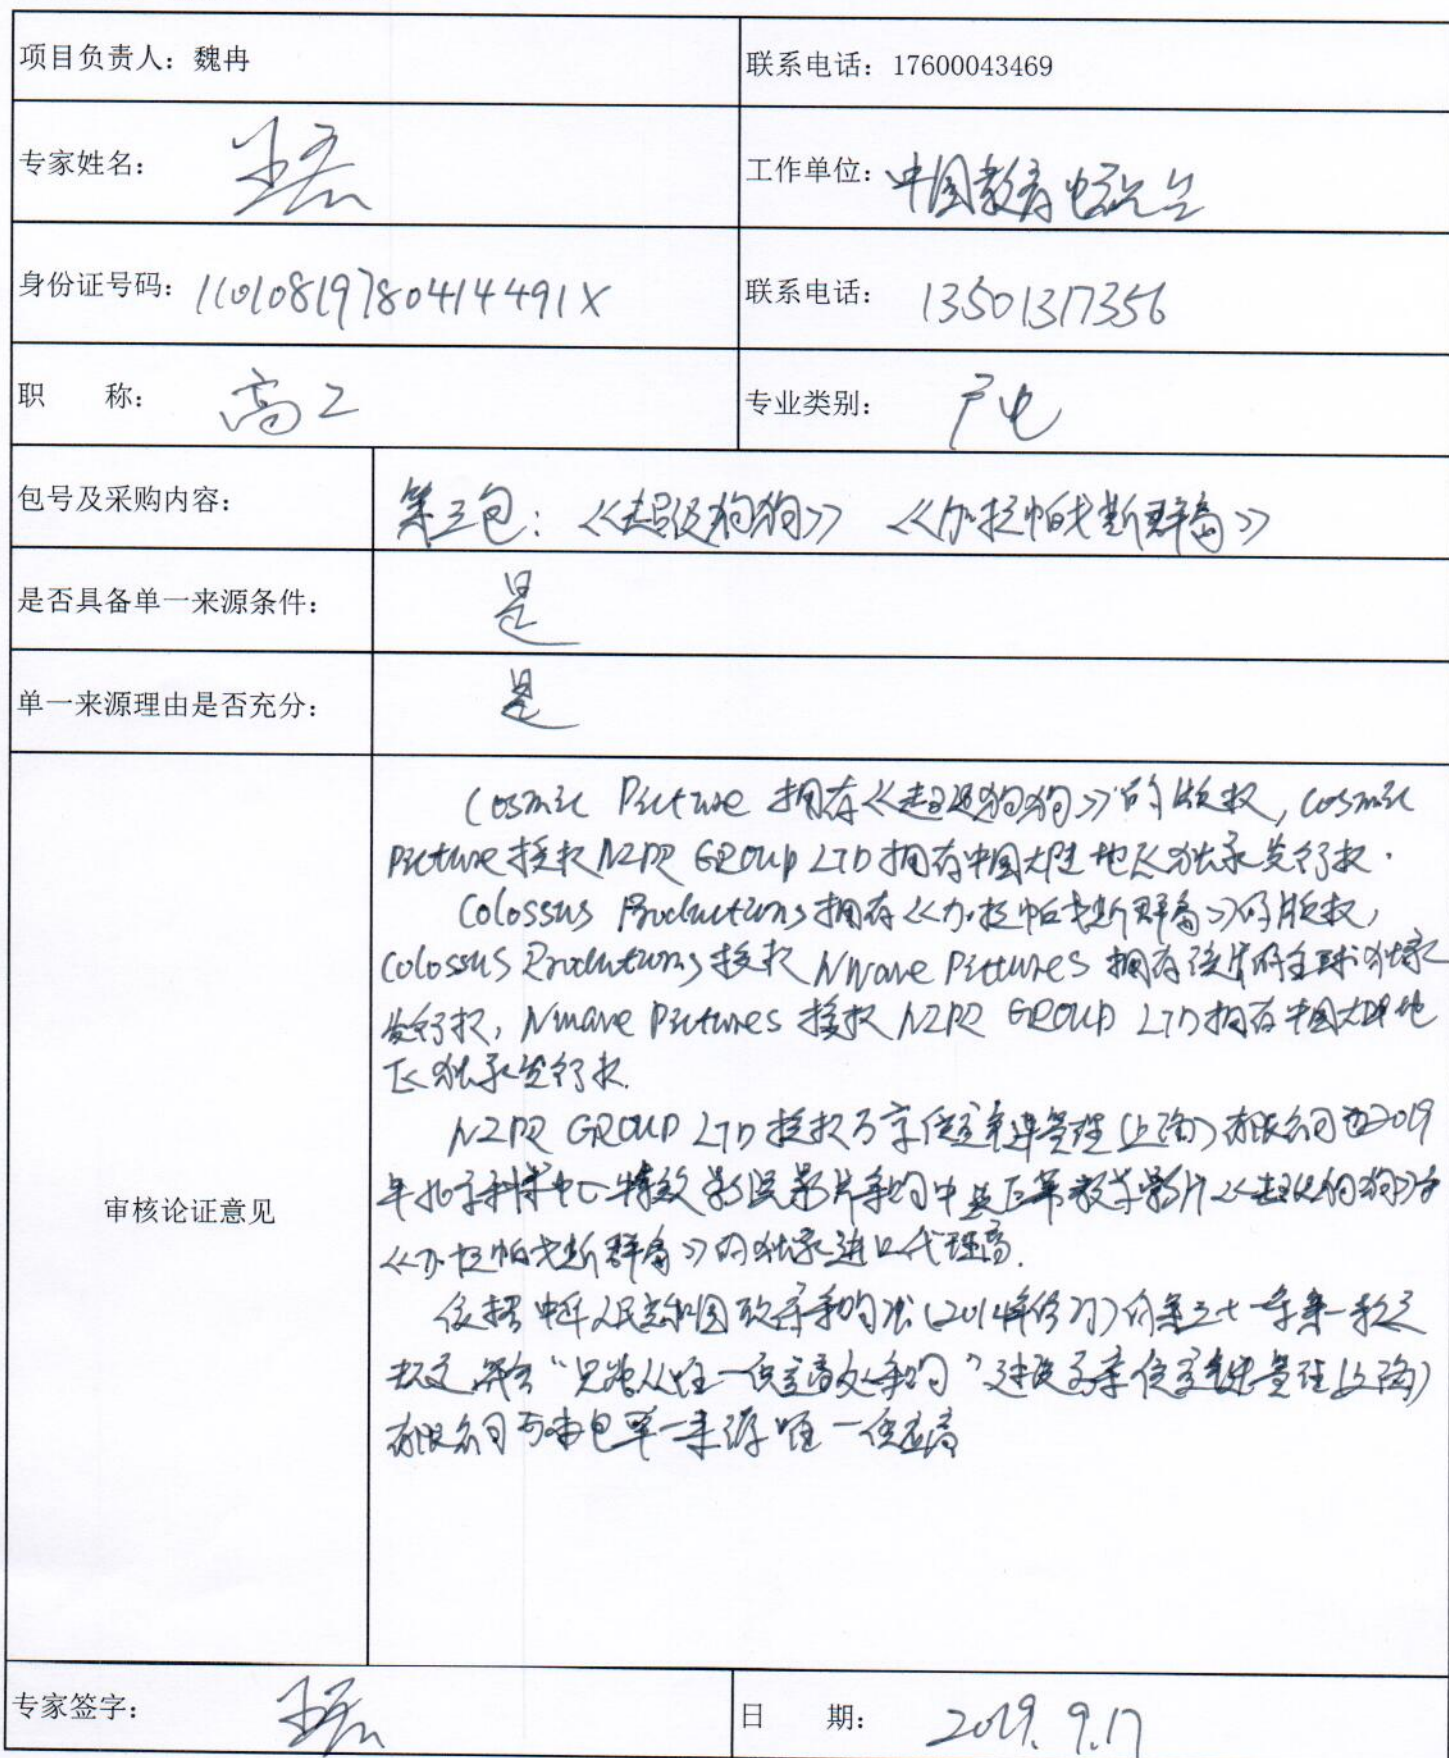 项目负责人：魏冉
联系电话：17600043469
专家姓名：
工作单位：中国教育电视台
身份证号码：11010819780414491X
联系电话：13501317356
职 称：高工
专业类别：广电
包号及采购内容：
第三包：《超级狗狗》 《加拉帕戈斯群岛》
是否具备单一来源条件：
是
单一来源理由是否充分：
是
审核论证意见
Cosmic Picture 拥有《超级狗狗》的版权，Cosmic
Picture授权NZPR GROUP LTD拥有中国大陆地区独家发行权.
Colossus Productions拥有《加拉帕戈斯群岛》的版权，
Colossus Productions授权 NWave Pictures 拥有该片的全球独家
发行权，Nwave Pictures 授权 NZPR GROUP LTD拥有中国大陆地
区独家发行权.
NZPR GROUP LTD 授权 管理(上海)有限公司为2019
年北京科博中心特效影院影片采购中 教学影片《超级狗狗》
《加拉帕戈斯群岛》的独家进口代理商.
依据中华人民共和国政府采购法(2014年修订)的第三十一条第一款之
规定 符合“只能从唯一供应商处采购” 管理(上海)
有限公司为本包单一来源唯一供应商
专家签字：
日 期：2019.9.17